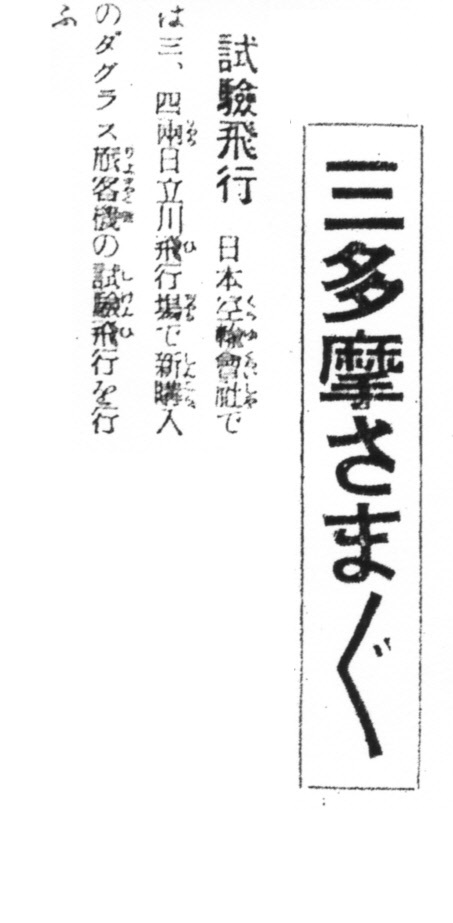 三多摩さま〴〵
試驗飛行 日本空輸會社で
は三、四兩日立川飛行場で新購入
のダグラス旅客機の試驗飛行を行
ふ